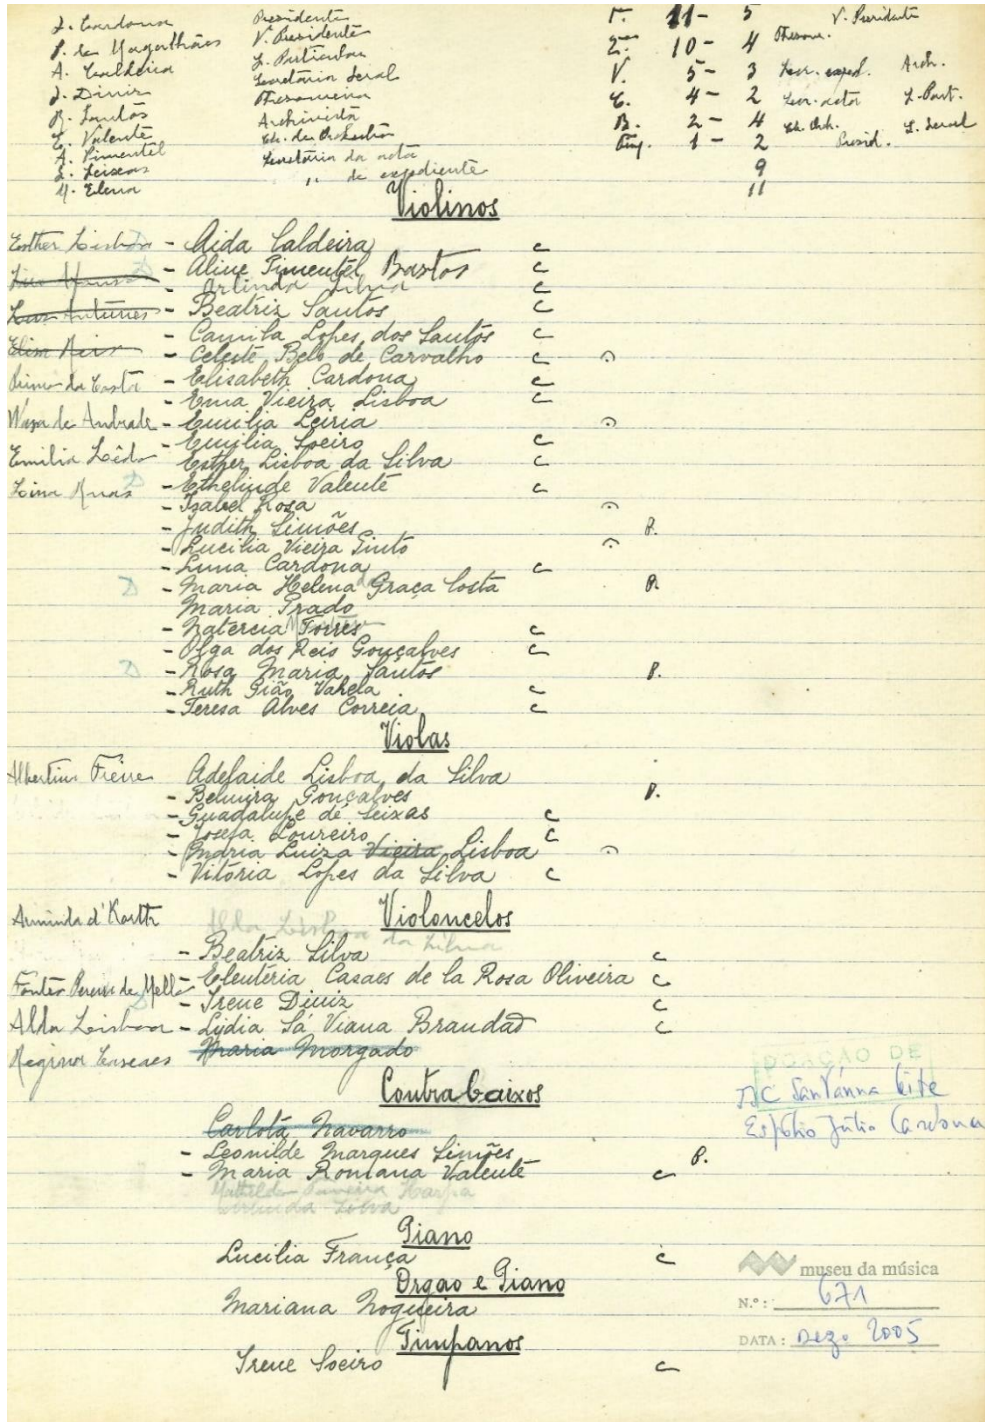 J. Cardona Presidente
P. de Magarthães V. Presidente
A. Caldeira S. Particular
J. Diniz Secretária Geral
R. Santos Thesoureira
E. Valente Archivista
A. Pimentel Ch. da Orchestra
S. Leiseas Secretária da acta
M. Elena " de expediente
F. 11 - 5 V. Presidente
2.os 10 - 4 Thesour.
V. 5 - 3 Secr. exped. Arch.
C. 4 - 2 Secr. acta S. Part.
B. 2 - 4 Ch. Orch. S. Geral
Timp. 1 - 2 Presid.
9
11
Violinos
Esther Lisboa D - Aida Caldeira c
- Aline Pimentel Bastos c
- Arlinda Silva c
Antunes - Beatriz Santos c
- Camila Lopes dos Santos c
- Celeste Belo de Carvalho c
da Costa - Elisabeth Cardona c
- Ema Vieira Lisboa c
de Andrade - Emilia Leiria
- Emilia Soeiro c
Emilia Lêdo Esther Lisboa da Silva c
Lina Ruas D - Ethelinde Valente c
- Isabel Rosa
- Judith Simões P.
- Lucilia Vieira Pinto
- Luna Cardona c
D - Maria Helena da Graça Costa P.
Maria Prado
- Natercia Torres c
- Olga dos Reis Gonçalves c
D - Rosa Maria Santos P.
- Ruth Gião Varela c
- Teresa Alves Correia c
Violas
Albertina Freire Adelaide Lisboa da Silva
- Belmira Gonçalves P.
- Guadalupe de Seixas c
- Josefa Loureiro c
- Maria Luiza Vieira Lisboa
- Vitória Lopes da Silva c
Violoncelos
Arminda d'Korth Alda Lisboa da Silva
- Beatriz Silva c
- Eleutéria Casaes de la Rosa Oliveira c
Pereira de Mello D - Irene Diniz c
Alda Lisboa - Lydia Sá Viana Brandão c
Regina Cascaes Maria Morgado
Contrabaixos
Carlota Navarro
- Leonilde Marques Simões P.
- Maria Romana Valente c
Mathilde Harpa
Silva
Piano
Lucilia França c
Orgao e Piano
Mariana Nogueira
Timpanos
Irene Soeiro c
DOAÇÃO DE
MC Santanna Leite
Espólio Júlio Cardona
museu da música
N.º: 671
DATA: Dez. 2005